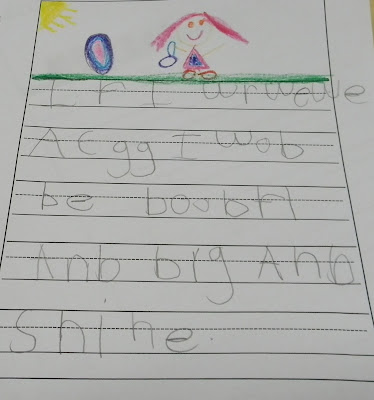 I F I wrwewe
A Egg I wob
be boubfl
Anb big Anb
Shine.